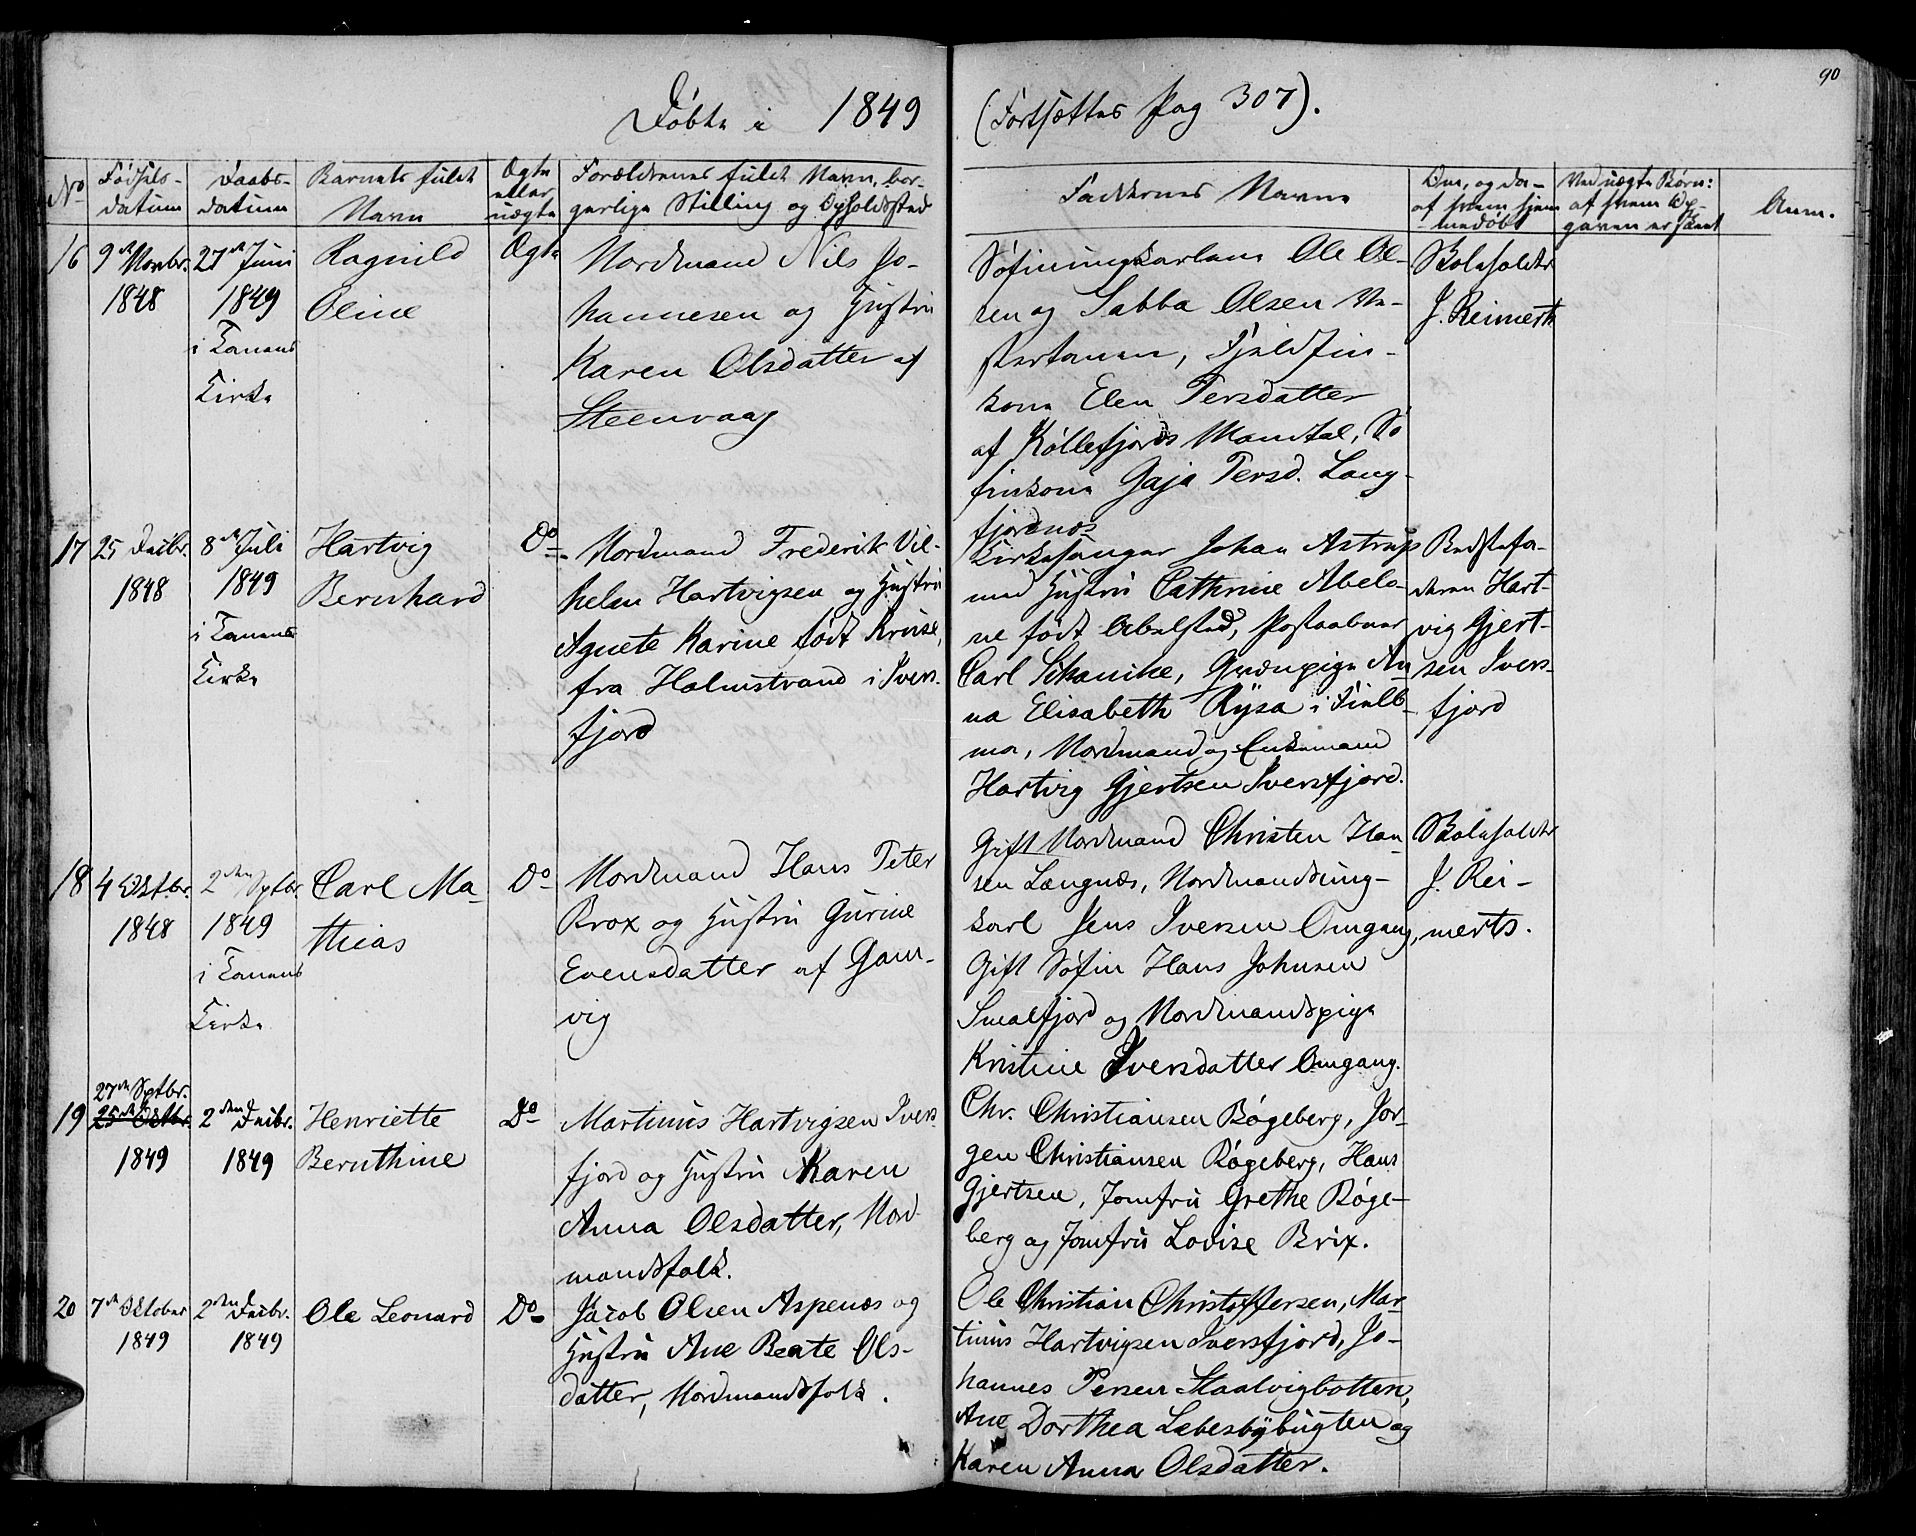 90
Døbte i 1849 (Fortsættes Pag 307).
No
Fødsels-
datum
Daabs-
datum
Barnets fulde
Navn
Ægte
eller
uægte
Forældrenes fulde Navn, bor-
gerlige Stilling og Opholdssted
Faddernes Navne
Om, og da
af hvem hjem
medøbt
Ved uægte Børn:
af hvem Op-
gaven er skeet
Anm.
16
9de Novbr.
1848
27de Juni
1849
i Tanens
Kirke
Ragnild
Oline
Ægte
Nordmand Nils Jo-
hannesen og Hustru
Karen Olsdatter af
Steenvaag
Søfinungkarlene Ole Ol-
sen og Sabba Olsen Ve-
stertanen, Fjeldfin-
kone Elen Persdatter
af Køllefjords Mandtal, Sø
finkone Gaja Persd. Lang-
fjordnæs
Skoleholder
J. Reimerts
17
25 Decbr.
1848
8de Juli
1849
i Tanens
Kirke
Hartvig
Bernhard
Do
Nordmand Frederik Vil-
helm Hartvigsen og Hustru
Agnete Karine født Kruse,
fra Holmstrand i Ivers-
fjord
Kirkesanger Johan Astrup
med Hustru Cathrine Abelo-
ne født Abelsted, Postaabner
Carl Schanche, Qvænpige An
na Elisabeth Rysa i Fielb-
ma, Nordmand og Enkemand
Hartvig Gjertsen Iversfjord.
Bedstefa-
deren Hart-
vig Gjert-
sen Ivers-
fjord
18
4 Oktbr.
1848
2den Sptbr.
1849
i Tanens
Kirke
Carl Ma-
thias
Do
Nordmand Hans Peter
Brox og Hustru Gurine
Evensdatter af Gam-
vig
Gift Nordmand Christen Han
sen Langnæs, Nordmandsung-
karl Jens Iversen Omgang,
Gift Søfin Hans Johnsen
Smalfjord og Nordmandspige
Kristine Iversdatter Omgang.
Skoleholder
J. Rei-
merts.
19
27de Sptbr.
25de Oktbr.
1849
2den Decbr.
1849
Henriette
Bernthine
Do
Martinus Hartvigsen Ivers
fjord og Hustru Karen
Anna Olsdatter, Nord
mandsfolk.
Chr. Christiansen Bøgeberg, Jør-
gen Christiansen Bøgeberg, Hans
Gjertsen, Jomfru Grethe Bøge-
berg og Jomfru Lovise Brix.
20
7de Oktober
1849
2den Decbr.
1849
Ole Leonard
Do
Jacob Olsen Aspenæs og
Hustru Ane Beate Ols-
datter, Nordmandsfolk.
Ole Christian Christoffersen, Mar-
tinus Hartvigsen Iversfjord, Jo-
hannes Persen Staalvigbotten,
Ane Dorthea Lebesbybugten og
Karen Anna Olsdatter.